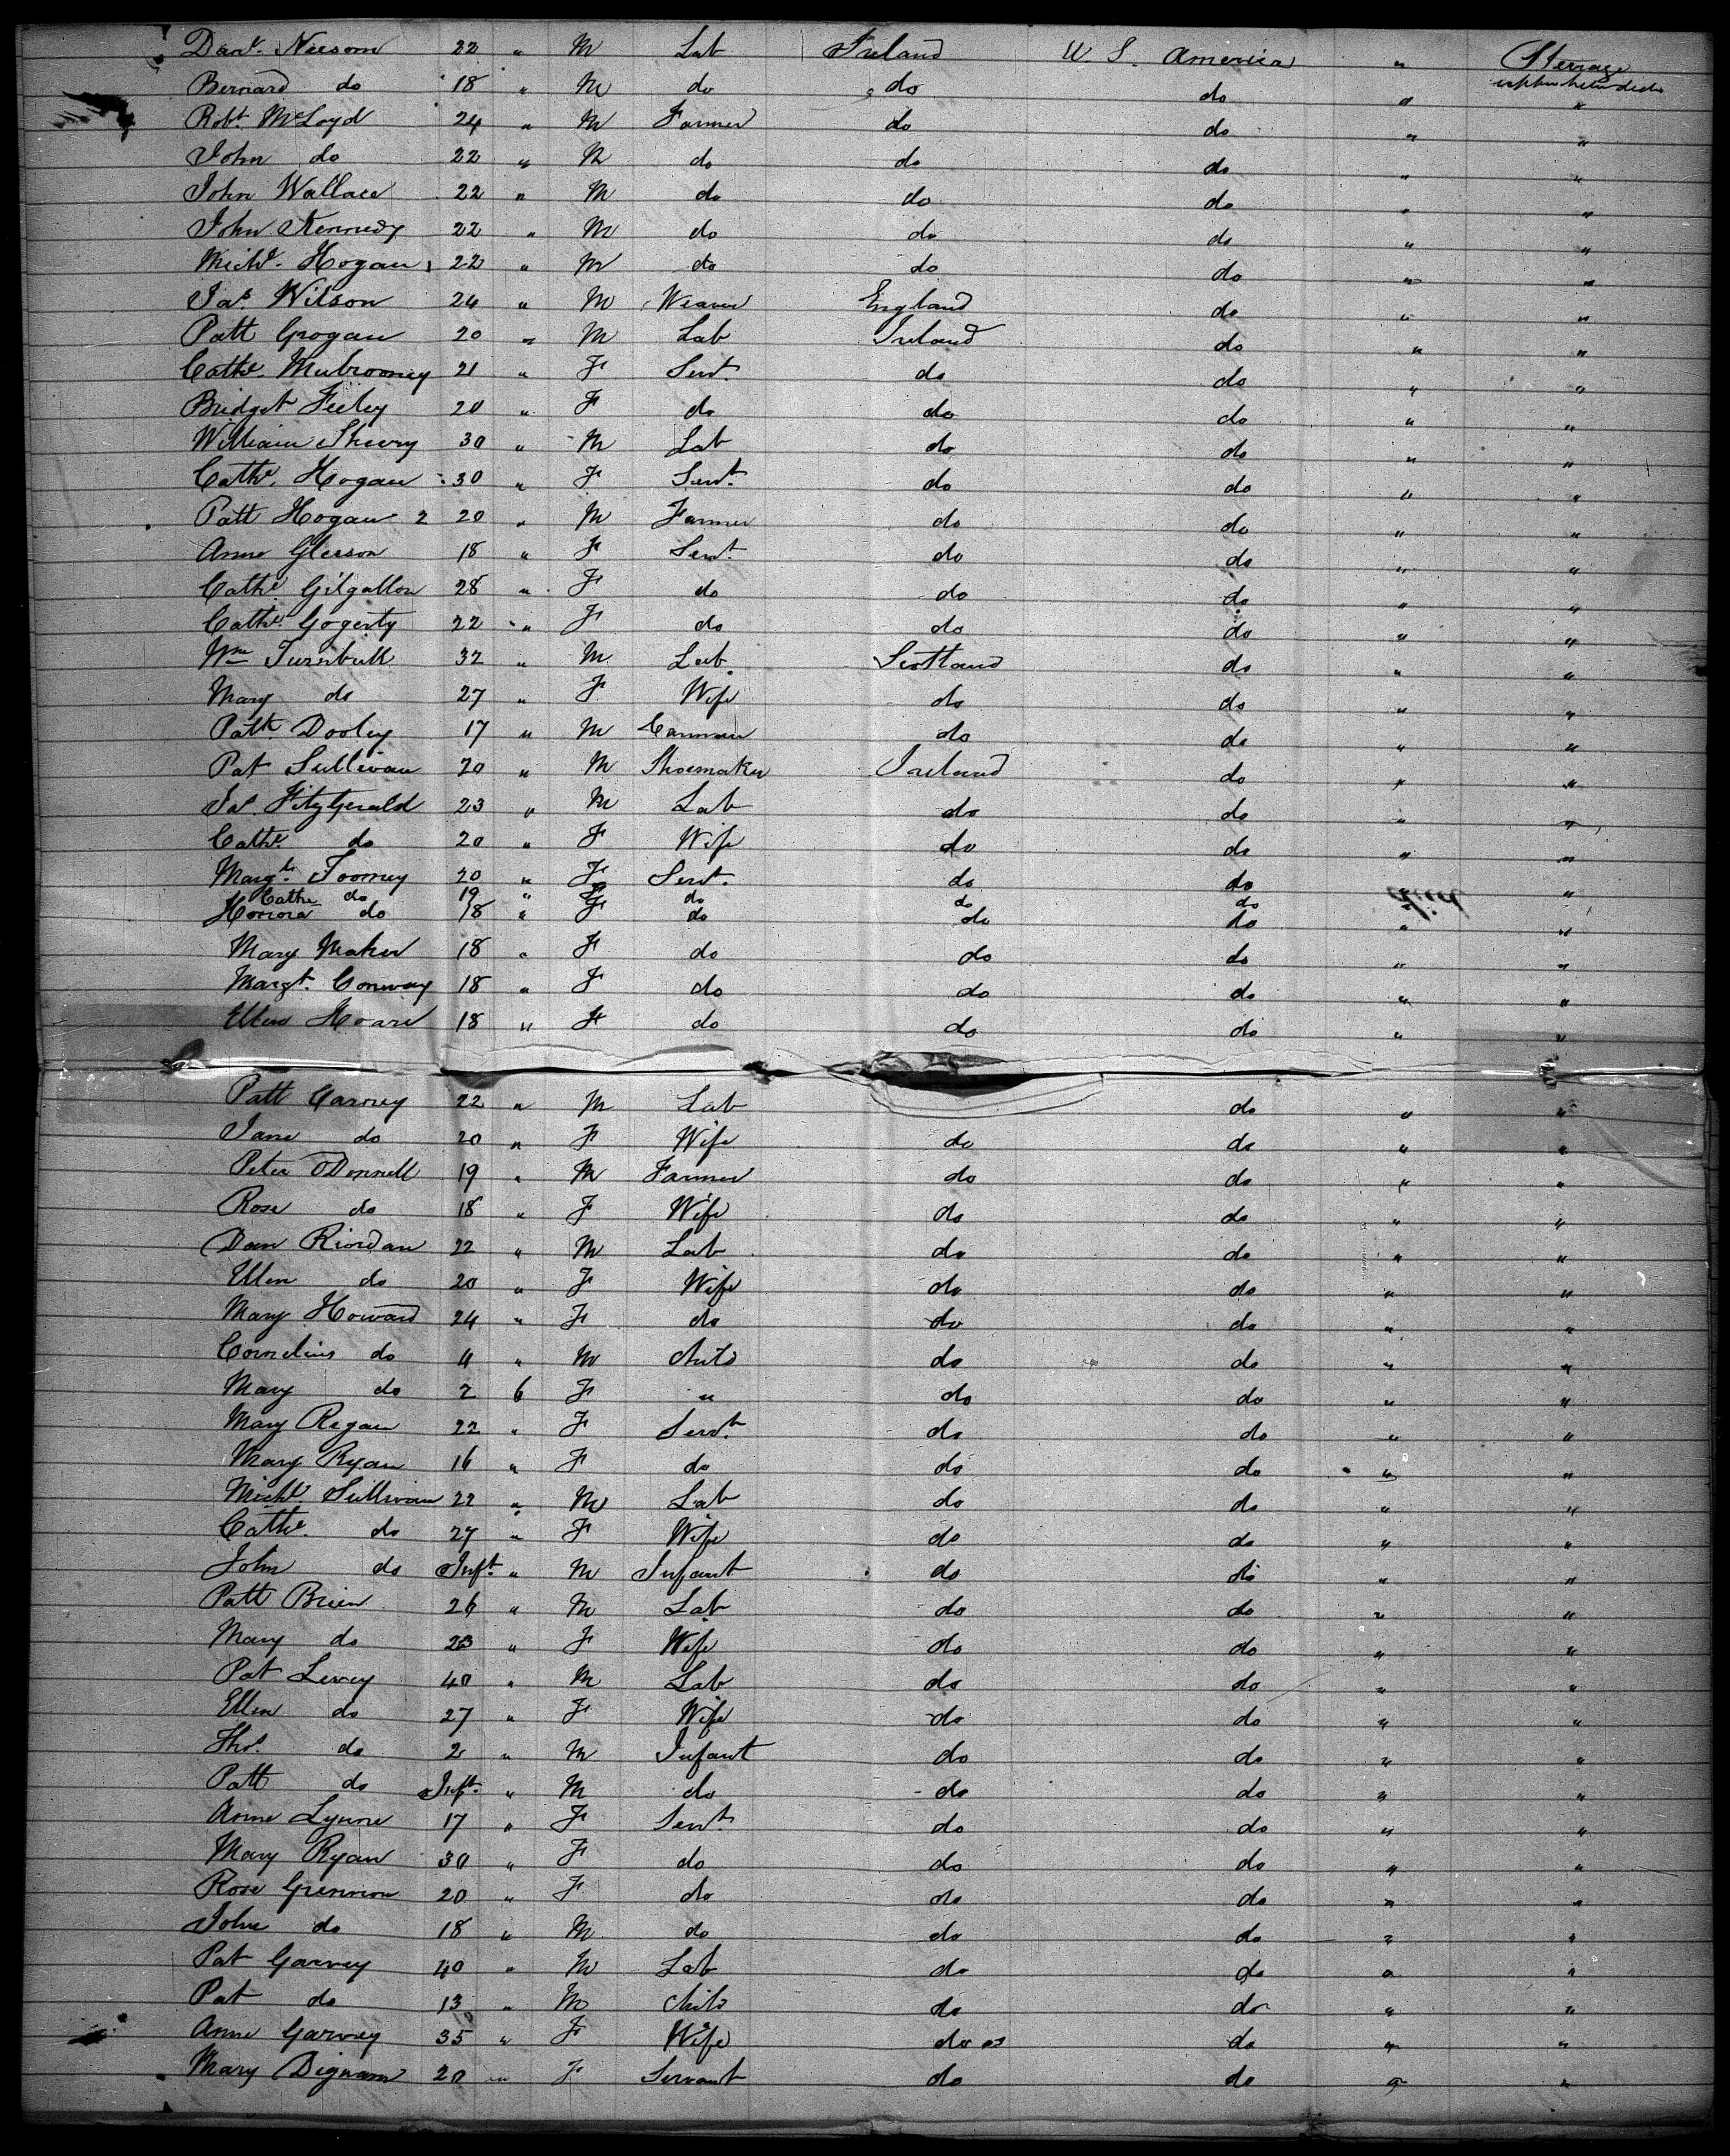 Danl. Neesom 22 " M Lab Ireland U. S. America " Sterrage
Bernard do 18 " M do do do " upper between decks "
Robt. McLoyd 24 " M Farmer do do " "
John do 22 " M do do do " "
John Wallace 22 " M do do do " "
John Kennedy 22 " M do do do " "
Michl. Hogan 1 22 " M do do do " "
Jas Wilson 24 " M Weaver England do " "
Patt Grogan 20 " M Lab Ireland do " "
Cathe. Mulrooney 21 " F Servt. do do " "
Bridget Feeley 20 " F do do do " "
William Sheery 30 " M Lab do do " "
Cathe. Hogan 30 " F Servt. do do " "
Patt Hogan 2 20 " M Farmer do do " "
Anne Gleeson 18 " F Servt. do do " "
Cathe Gilgallon 28 " F do do do " "
Cathe. Gogerty 22 " F do do do " "
Wm Turnbull 32 " M Lab. Scotland do " "
Mary do 27 " F Wife do do " "
Patk Dooley 17 " M Carman do do " "
Pat Sullivan 20 " M Shoemaker Ireland do " "
Jas. FitzGerald 23 " M Lab do do " "
Cathe. do 20 " F Wife do do " "
Margt. Toomey 20 " F Servt. do do "
Cathe do 19 " F do do do died
Honora do 18 " F do do do " "
Mary Maher 18 " F do do do " "
Margt. Conway 18 " F do do do " "
Ellen Hoare 18 " F do do do " "
Patt Garvey 22 " M Lab do " "
Jane do 20 " F Wife do do " "
Peter ODonnell 19 " M Farmer do do " "
Rose do 18 " F Wife do do " "
Dan Riordan 22 " M Lab do do " "
Ellen do 20 " F Wife do do " "
Mary Howard 24 " F do do do " "
Cornelius do 4 " M child do do " "
Mary do 2 6 F " do do " "
Mary Regan 22 " F Servt. do do " "
Mary Ryan 16 " F do do do " "
Michl. Sullivan 22 " M Lab do do " "
Cathe. do 27 " F Wife do do " "
John do Inft. " M Infant do do " "
Patt Brien 26 " M Lab do do " "
Mary do 23 " F Wife do do " "
Pat Levey 40 " M Lab do do " "
Ellen do 27 " F Wife do do " "
Thos. do 2 " M Infant do do " "
Patt do Inft. " M do do do " "
Anne Lynne 17 " F Servt. do do " "
Mary Ryan 30 " F do do do " "
Rose Grennon 20 " F do do do " "
John do 18 " M do do do " "
Pat Garvey 40 " M Lab do do " "
Pat do 13 " M child do do " "
Anne Garvey 35 " F Wife do do " "
Mary Dignam 20 " F Servant do do " "